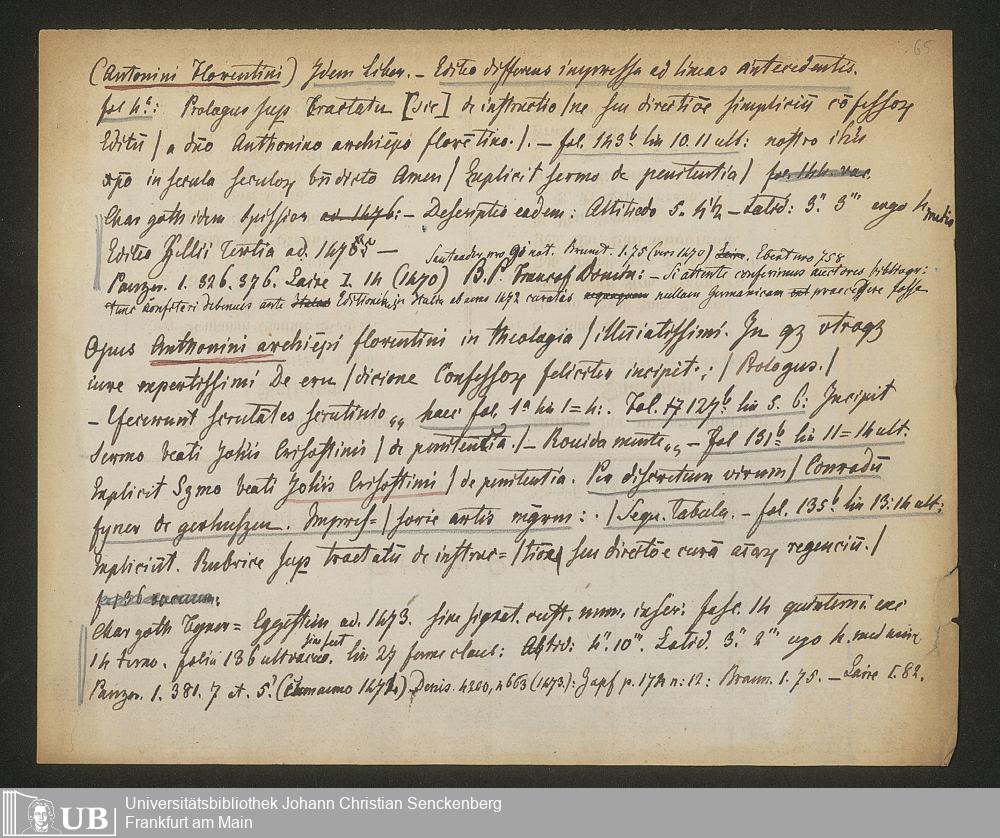 65
(Antonini Florentini) Idem Liber. - Editio differens impressa ad lineas antecedentis.
fol 4ª: Prologus sup Tractatu [sic] de instructio / ne seu directiõe simpliciũ cõfessoꝝ
Editũ / a dño Anthonino archiepo florẽtino. /. - fol. 143ᵇ lin 10. 11 ult: nostro ihũ
xp̃o in secula seculoꝝ bñdicto Amen / Explicit sermo de penitentia / fol. 144. vac.
Char goth idem spission ad 1476: - Descriptio eadem: Altitudo 5. - Latid: 3." 3''' ergo 4 medio
Editio Zellii tertia ad. 147 -
Santander nro 90 nat. Brunet. 1.75 (vers 1470) Ebert nro 758
Panzer. 1. 326. 376. Laire I. 14 (1470) B. P. Francof Domin: - Si attente conferimus auctores bibliogr:
tunc confiteri debemus ante Editionem in Italia ab anno 1472 curatas nullam Germanicam praecedere posse
Opus Anthonini archiepi florentini in theologia / illuiatissimi. In qꝫ vtroqꝫ
iure expertissimi De eru / dicione Confessoꝝ feliciter incipit.; / Prologus. /
- Efecerunt scrutãtes scrutinio „ haec fol. 1ª lin 1=4:. Fol. 127ᵇ lin 5. 6: Incipit
Sermo beati Johĩs Crisostimi / de penitencia. / - Rouida mente „ - Fol 131ᵇ lin 11=14 ult.
Explicit Sgmo beati Johĩs Crisostimi / de penitentia. Per discretum virum / Conradũ
fyner de gerhuszen. Impres= / sorie artis mgrm: . / Sequ. Tabula. - fol. 135ᵇ lin 13.14 ult:
Expliciũt. Rubrice sup tractatũ de instruc= / tiõe / seu directõe curã aĩaꝝ regenciũ. /
f 136 vacuum:
Char goth Fyner= Eggestein ad. 1473. sine signat. cust. num. inser: fasc. 14 quinterni exc
14 terno. folia 136 ult vacuo. sine fect lin 27 forme claus: Altid: 4." 10'''. Latid. 3." 2''' ergo 4. med min
Panzer. 1. 381. 7 et. 5. (cum anno 1472) Denis. 4200, 4663 (1473.): Zapf p. 174 n: 12: Braun. 1. 75. - Laire I. 82.
UB
Universitätsbibliothek Johann Christian Senckenberg
Frankfurt am Main